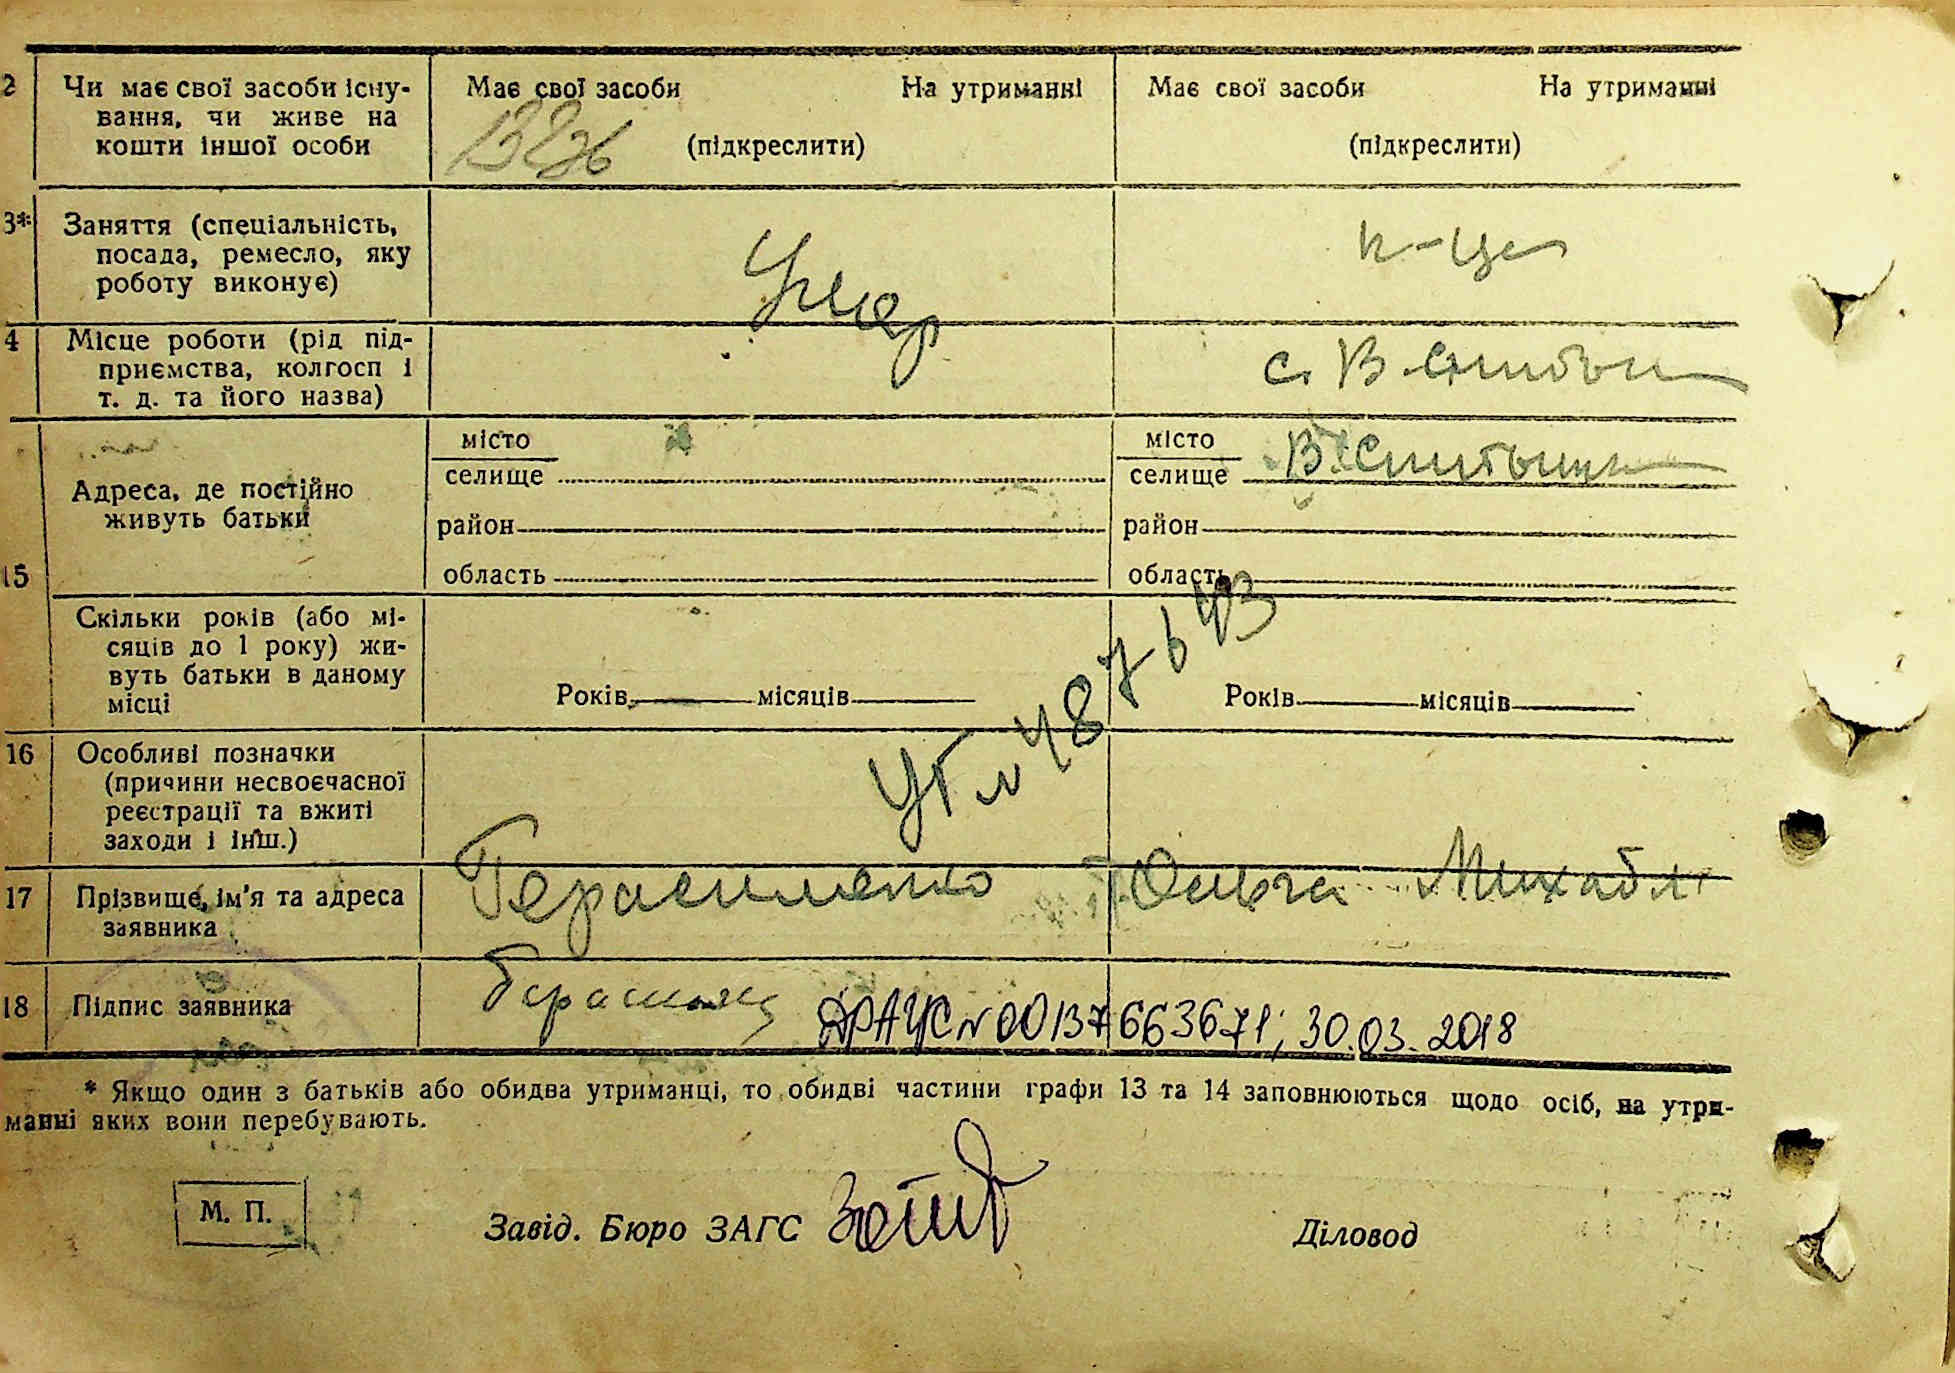 2 Чи має свої засоби існу- Має свої засоби На утриманні Має свої засоби На утриманні
вання, чи живе на
кошти іншої особи (підкреслити) (підкреслити)
3* Заняття (спеціальність,
посада, ремесло, яку Умер к-ця
роботу виконує)
4 Місце роботи (рід під-
приємства, колгосп і с. В
т. д. та його назва)
місто місто
селище селище В.
Адреса, де постійно
живуть батьки район район
15 область область
Скільки років (або мі-
сяців до 1 року) жи-
вуть батьки в даному
місці Років місяців Років місяців
УГ № 487643
16 Особливі позначки
(причини несвоєчасної
реєстрації та вжиті
заходи і інш.)
17 Прізвище, ім'я та адреса Герасименко Ольга Михайл
заявника
18 Підпис заявника
ДРАЦС № 00137663671; 30.03.2018
* Якщо один з батьків або обидва утриманці, то обидві частини графи 13 та 14 заповнюються щодо осіб, на утри-
манні яких вони перебувають.
М. П.
Завід. Бюро ЗАГС Діловод